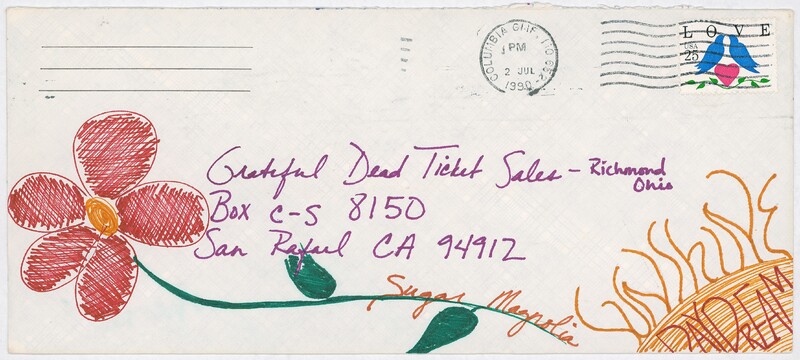 COLUMBIA GMF. MO 652
PM
2 JUL
1990
LOVE
USA
25
Grateful Dead Ticket Sales – Richmond
Ohio
Box C-S 8150
San Rafael CA 94912
Sugar Magnolia
SunShiNE
DAYDREAM